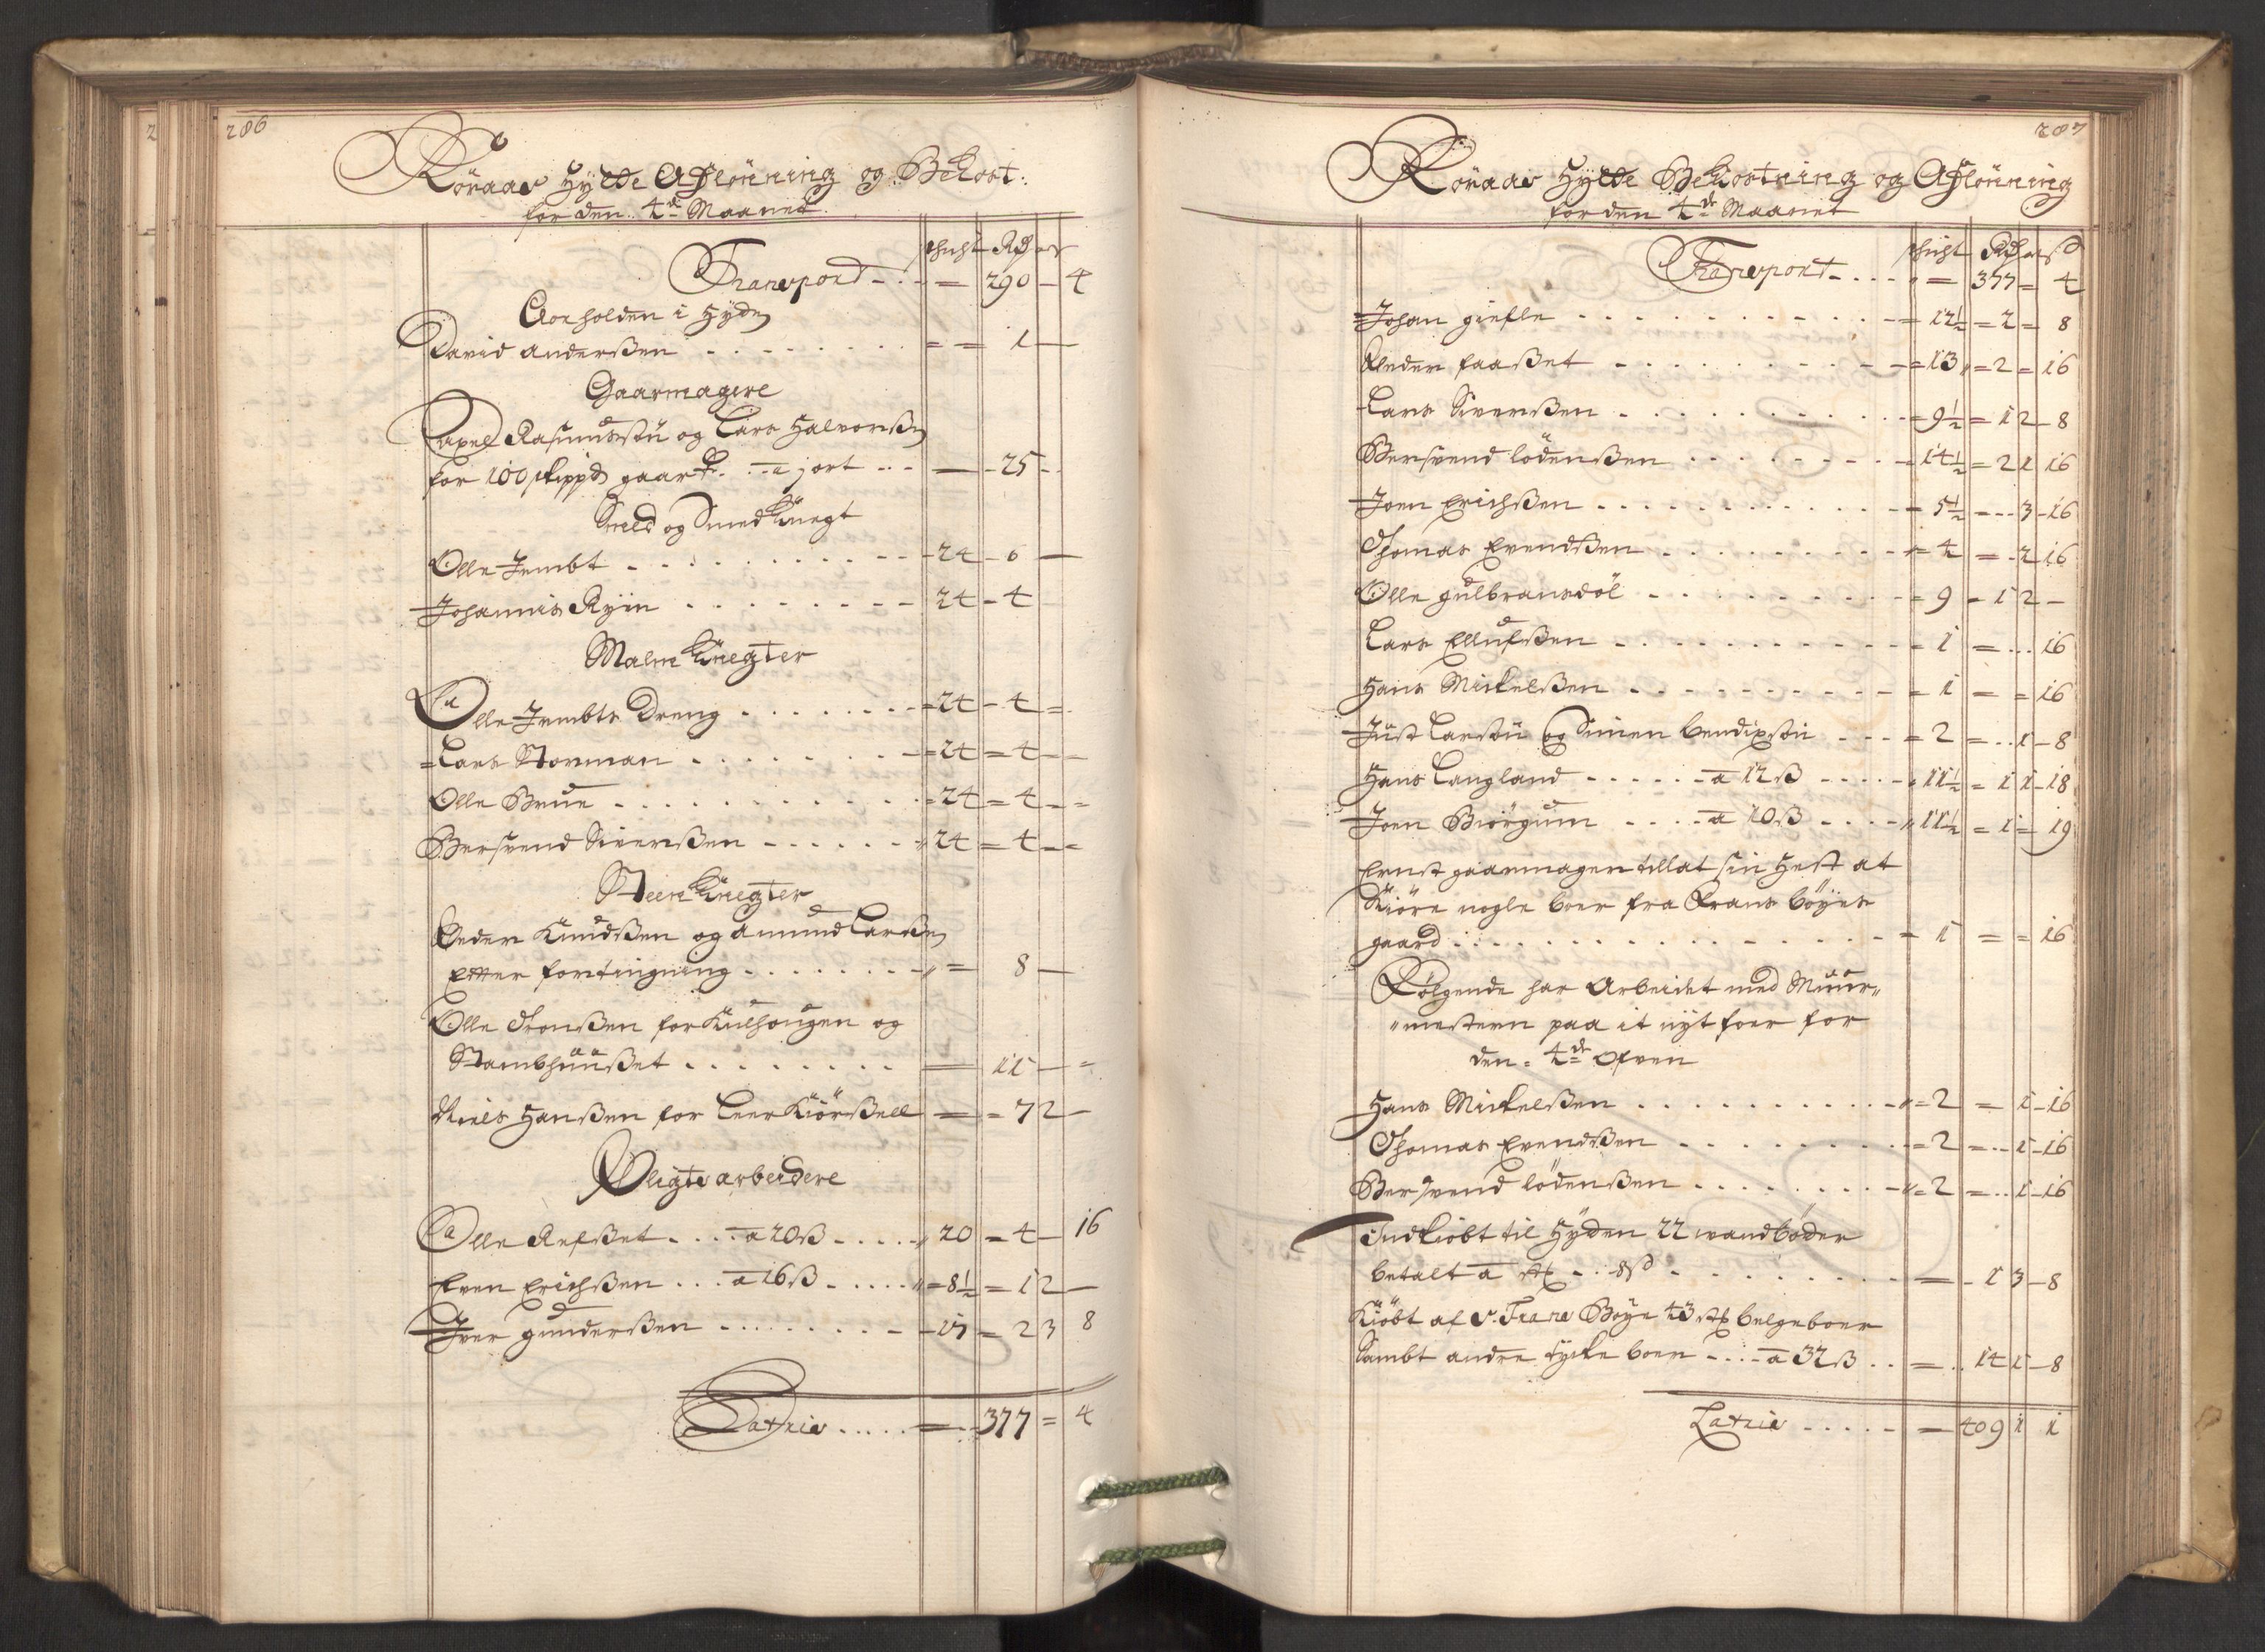 286
Röraas Hÿtte Afflönning og Bekost:
for den 4de Maanet
schicht Rd ort
Transport - - - = 290 - 4
i Hÿtt
David Anderßen . . . . = = 1 —
Gaarmagere
Rasmusßen og Lars Halvorßen
for 100 skippd gaark. . . a j ort . . — - 25 - -
Smed og Smed Knegt
Olle Jembt . . . . - 24 - 6 —
Johannis Rÿin . . . . - 24 - 4
Malm Knegter
Olle Jembts Dreng . . . . - 24 - 4 =
Lars Storman . . . . = 24 = 4 - -
Olle Brue . . . . = 24 = 4 - =
Bersvend Siverßen . . . . 24 = 4 - =
Steen Knegter
Peder Knudßen og Amund Larßen
Efter fortingning . . . . = 8 —
Olle Tronßen for Kulhougen og
Stambhuußet . . . . — 11 - =
Niels Hanßen for Leer Kiörßell = - 7 2 —
Pligts arbeidere
Olle Refßet . . . . a 20 ß . . . . 20 = 4 - 16
Even Erichßen . . . a 16 ß . . . . = 8½ = 1 2 —
Iver Gunderßen . . . . - 17 = 2 3 8
Latris . . . . . = 377 = 4
287
Röraas Hÿtte Bekostning og Afflönning
for den 4de Maanet
schicht Rd ort ß
Transport - . . . = 377 = 4
Johan giefle . . . . = 12½ = 2 = 8
Peder faaßet . . . . = 13 = 2 = 16
Lars Siverßen . . . . = 9½ = 1 2 - 8
Bersvend Lödenßen . . . . = 14½ = 2 1 16
Joen Erichßen . . . . = 5½ = - - 3 - 16
Thomas Evendßen . . . . = 4 = - 2 16
Olle gulbransdöl . . . . = 9 = 1 2 —
Lars Ellufßen . . . . = 1 = . . 16
Hans Mickelßen . . . . = 1 = = 16
Just Larsön og Simen bendixön . . . = 2 = . . 1 - 8
Hans Langland . . . . . a 12 ß . . . . 11½ = 1 1 - 18
Joen Biörgum . . . . a 10 ß . . . . 11½ = 1 = 19
Ernst gaarmager tillat sin Hest at
Kiöre nogle boer fra Frans böÿes
gaard . . . . = 1 = = 16
Fölgende har Arbeidet med Muur
mestern paa it nÿt foer for
den 4de Ofven
Hans Mickelßen . . . . = 2 = 1 - 16
Thomas Evendßen . . . . = 2 = . . 1 - 16
Bersvend Lödenßen . . . . = 2 = . . 1 - 16
Indkiöbt til Hÿtten 22 wandböder
betalt a st . . 8 ß . . . . = - 1 3 - 8
Kiöbt af S. Frans Böÿe 43 st belgeboer
Sambt andre tÿcke boer . . . . a 32 ß . . = . . 14 1 - 8
Latris . . . . . = 409 1 1